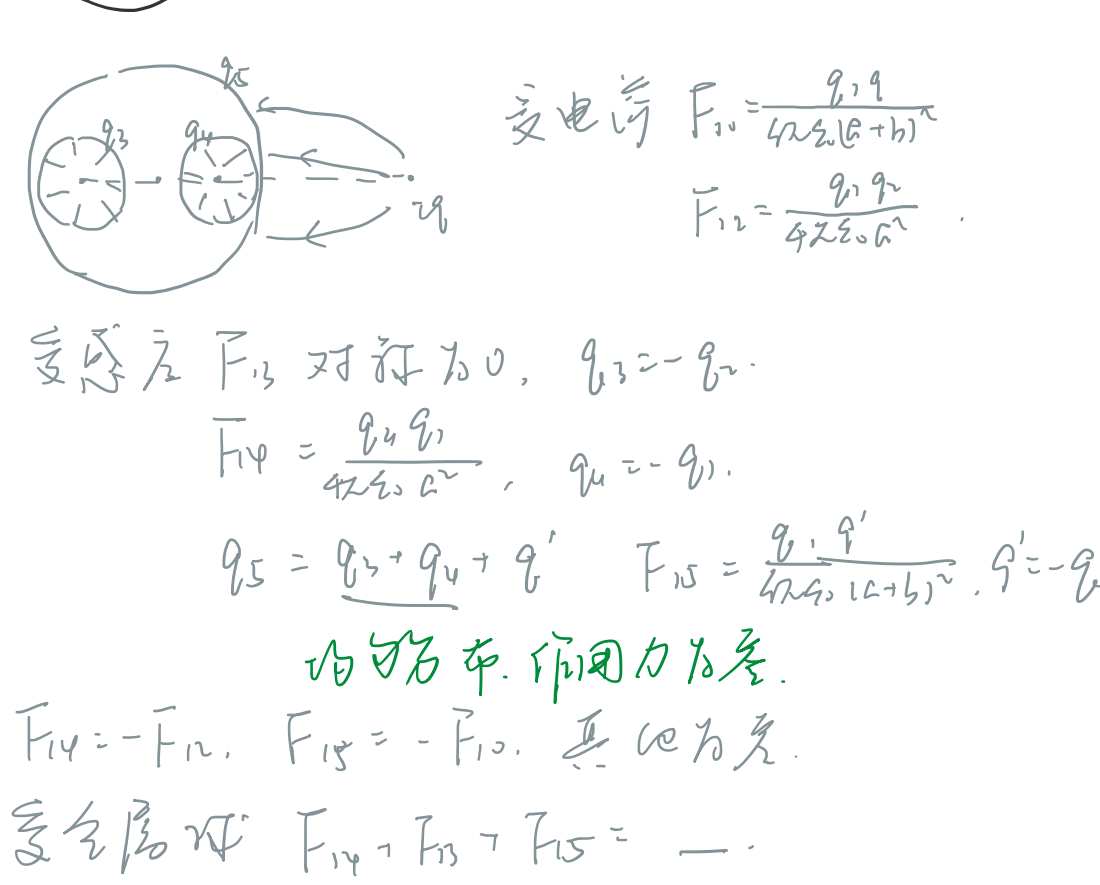 q5
q3 q4
q
受电荷 F10 = q1q / 4πε0(a+b)²
F12 = q1q2 / 4πε0a².
受感应 F13 对称为0, q3=-q2.
F14 = q4q1 / 4πε0a², q4=-q1.
q5 = q3+q4+q' F15 = q1q' / 4πε0(a+b)². q'=-q
均匀分布.作用力为零.
F14=-F12, F15=-F10. 其他为零.
受金属球 F14+F13+F15=__.